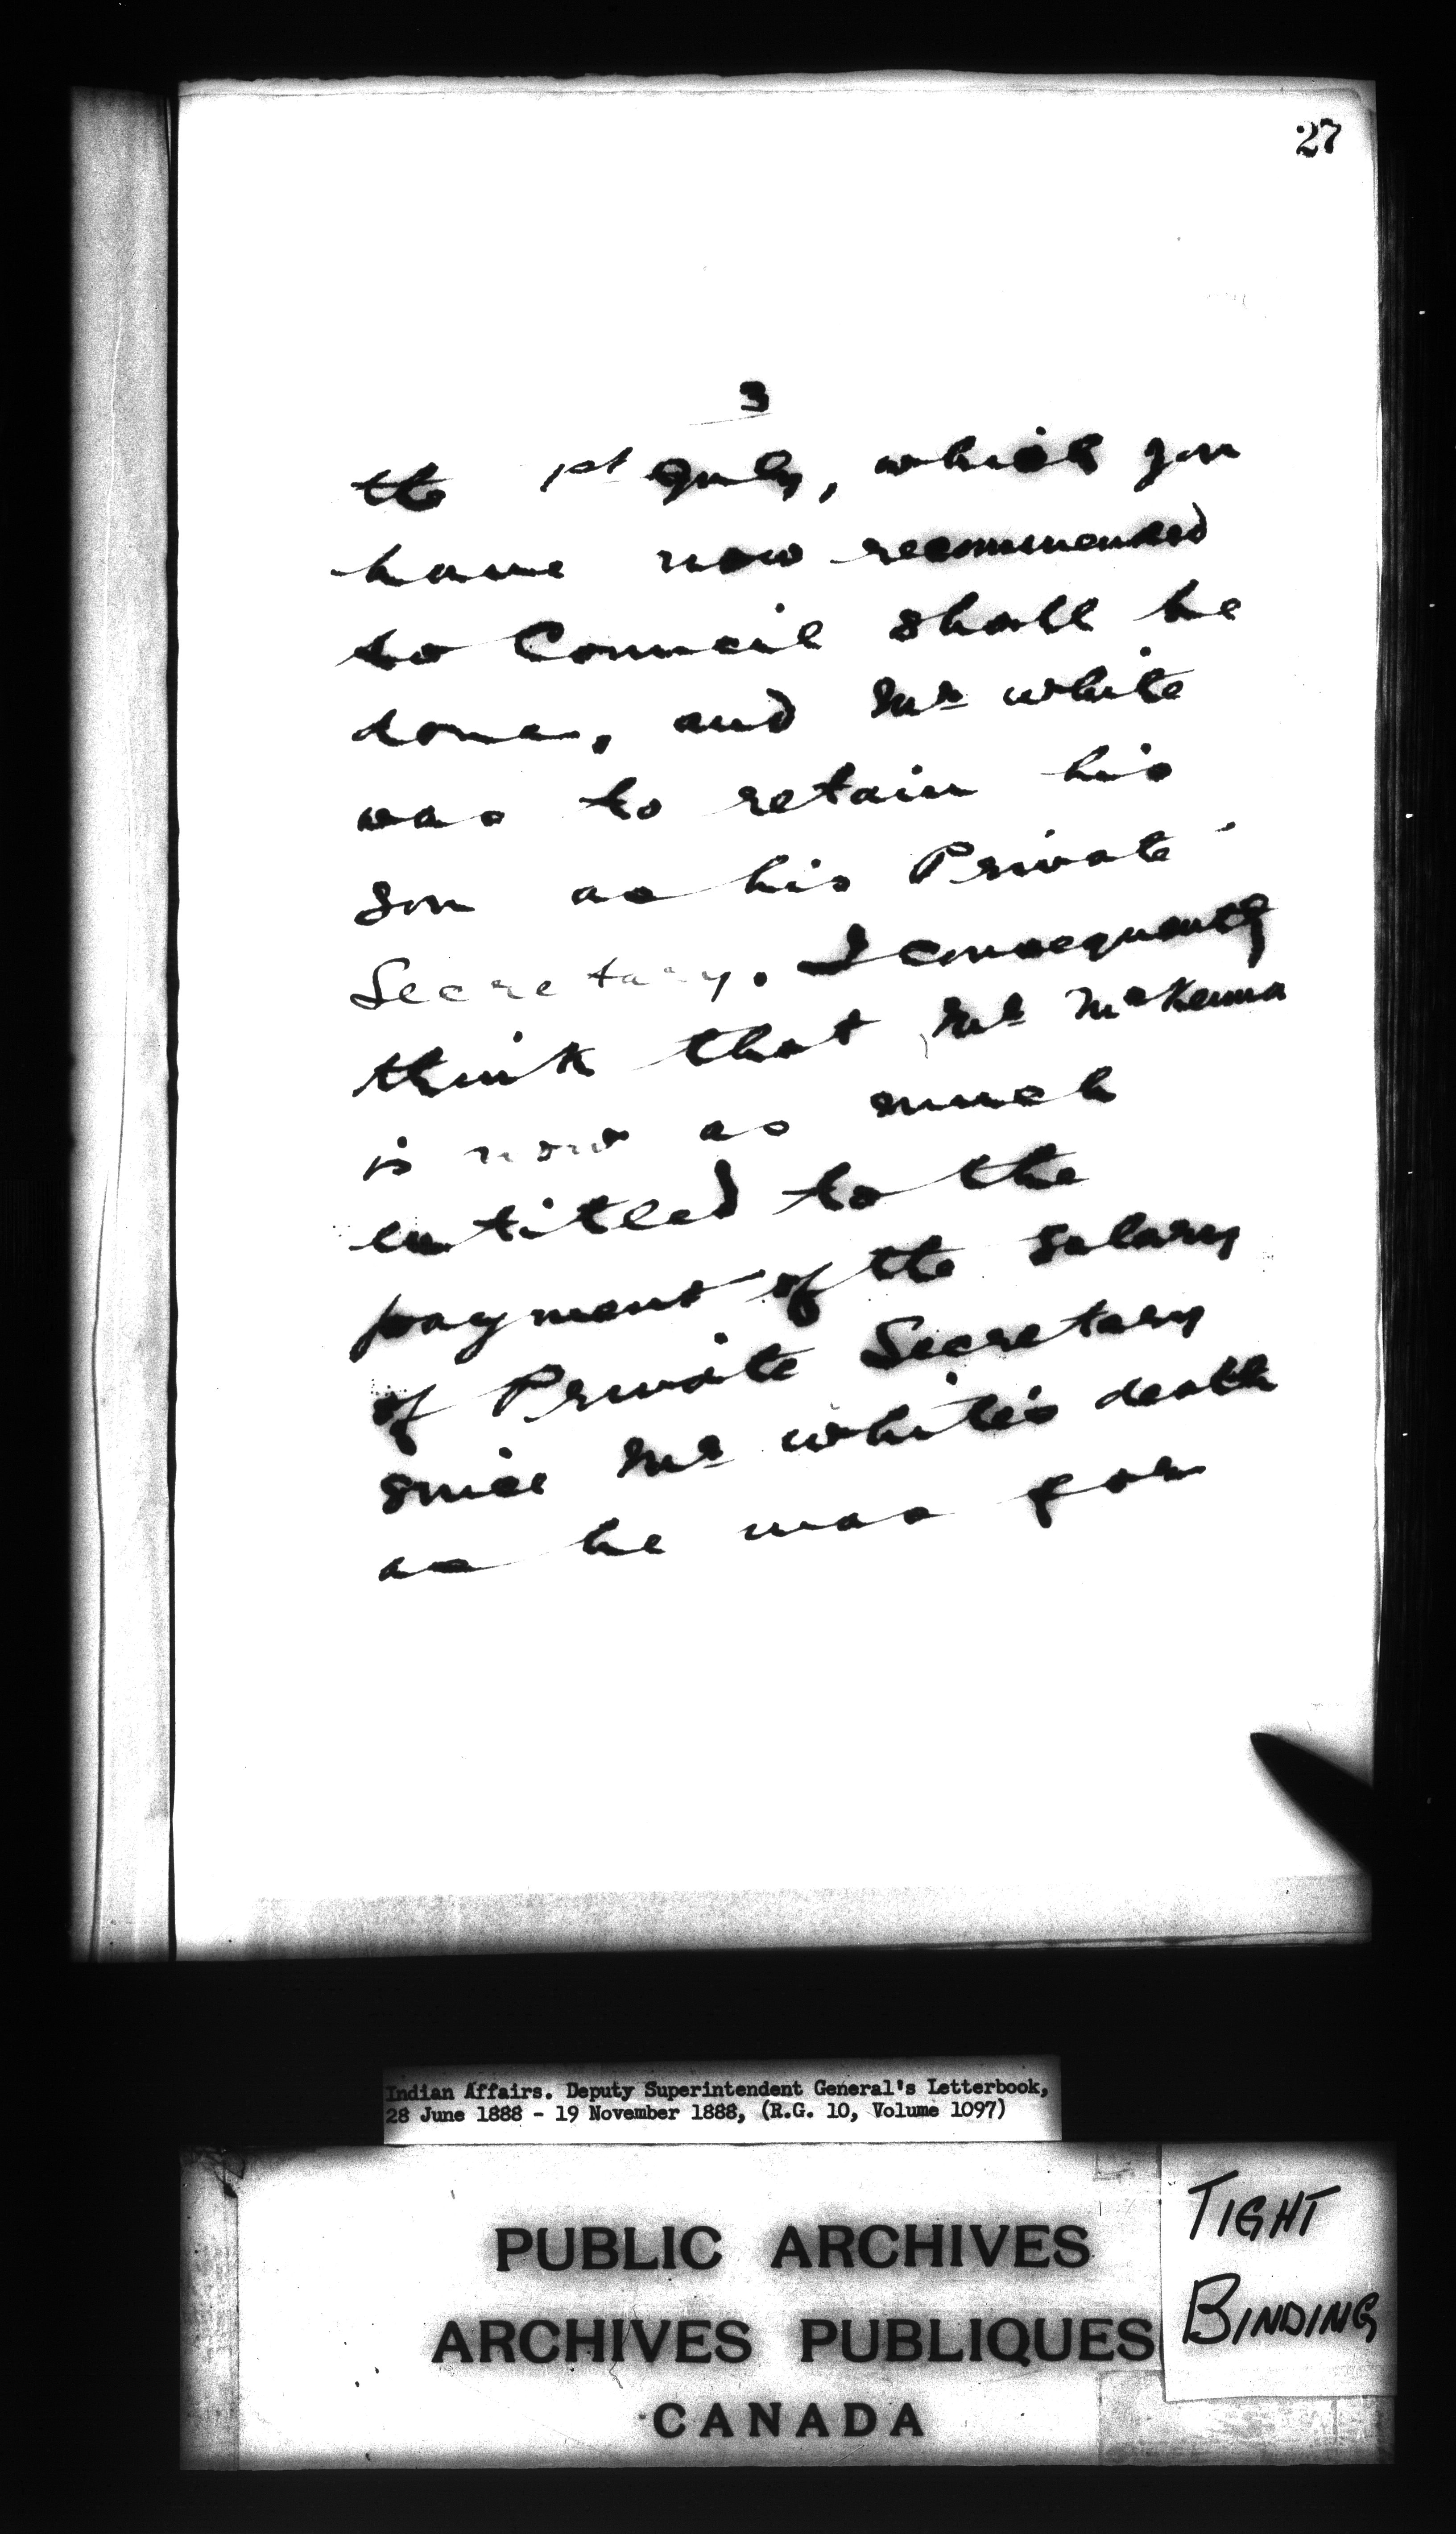 27
3
the 1st July, which you
have now recommended
to Council shall be
done, and Mr White
was to retain his
son as his Private
Secretary. I consequently
think that Mr McKenna
is now as much
entitled to the
payment of the salary
of Private Secretary
since Mr White's death
as he was for
Indian Affairs. Deputy Superintendent General's Letterbook,
28 June 1888 - 19 November 1888, (R.G. 10, Volume 1097)
PUBLIC ARCHIVES
ARCHIVES PUBLIQUES
CANADA
TIGHT
BINDING